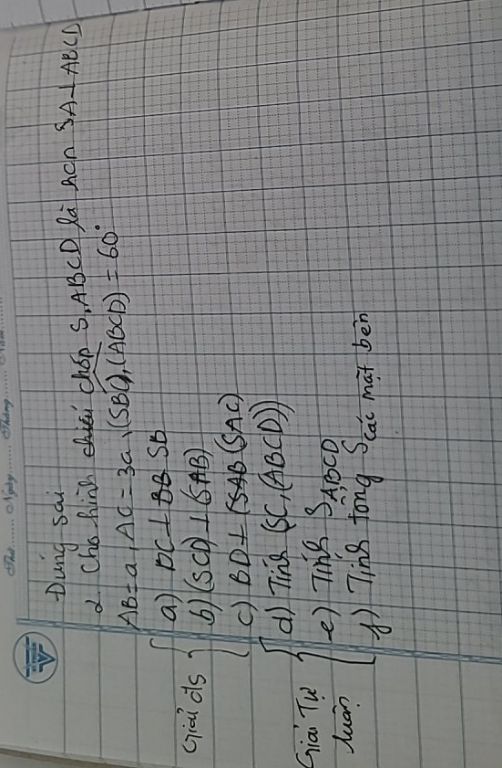 Thứ........ Ngày........ Tháng........ Năm........
Đúng sai
2. Cho hình chóp S,ABCD là hcn SA⊥ABCD
AB=a, AC=3a, (SBC),(ABCD)=60°
Giải đs
a) DC⊥BB SB
b) (SCD)⊥(SAB)
c) BD⊥(SAB (SAC)
Giải Tự luận
d) Tính (SC,(ABCD))
e) Tính S ABCD
f) Tính tổng S các mặt bên